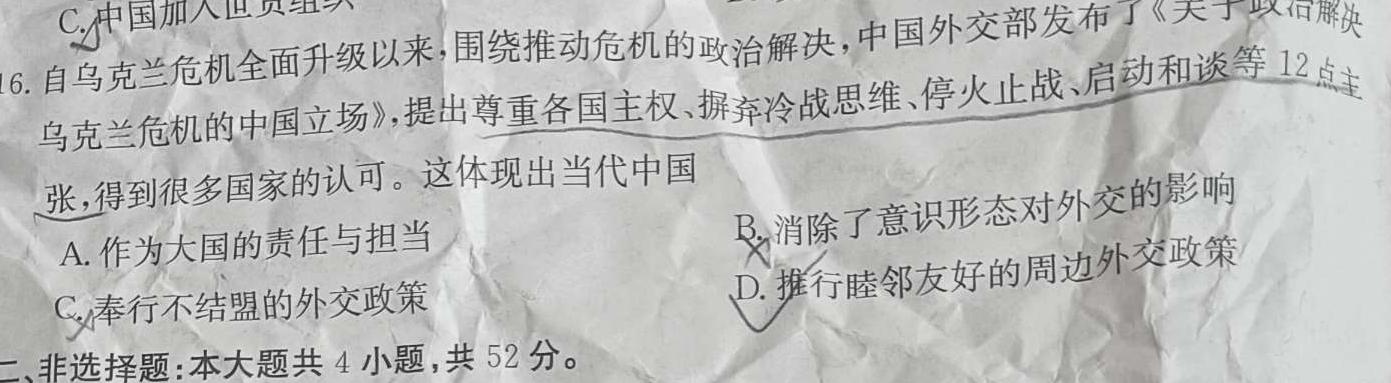 C. 中国加入世贸组织
16. 自乌克兰危机全面升级以来,围绕推动危机的政治解决,中国外交部发布了《关于政治解决
乌克兰危机的中国立场》,提出尊重各国主权、摒弃冷战思维、停火止战、启动和谈等 12 点主
张,得到很多国家的认可。这体现出当代中国
A. 作为大国的责任与担当
B. 消除了意识形态对外交的影响
C. 奉行不结盟的外交政策
D. 推行睦邻友好的周边外交政策
二、非选择题:本大题共 4 小题,共 52 分。